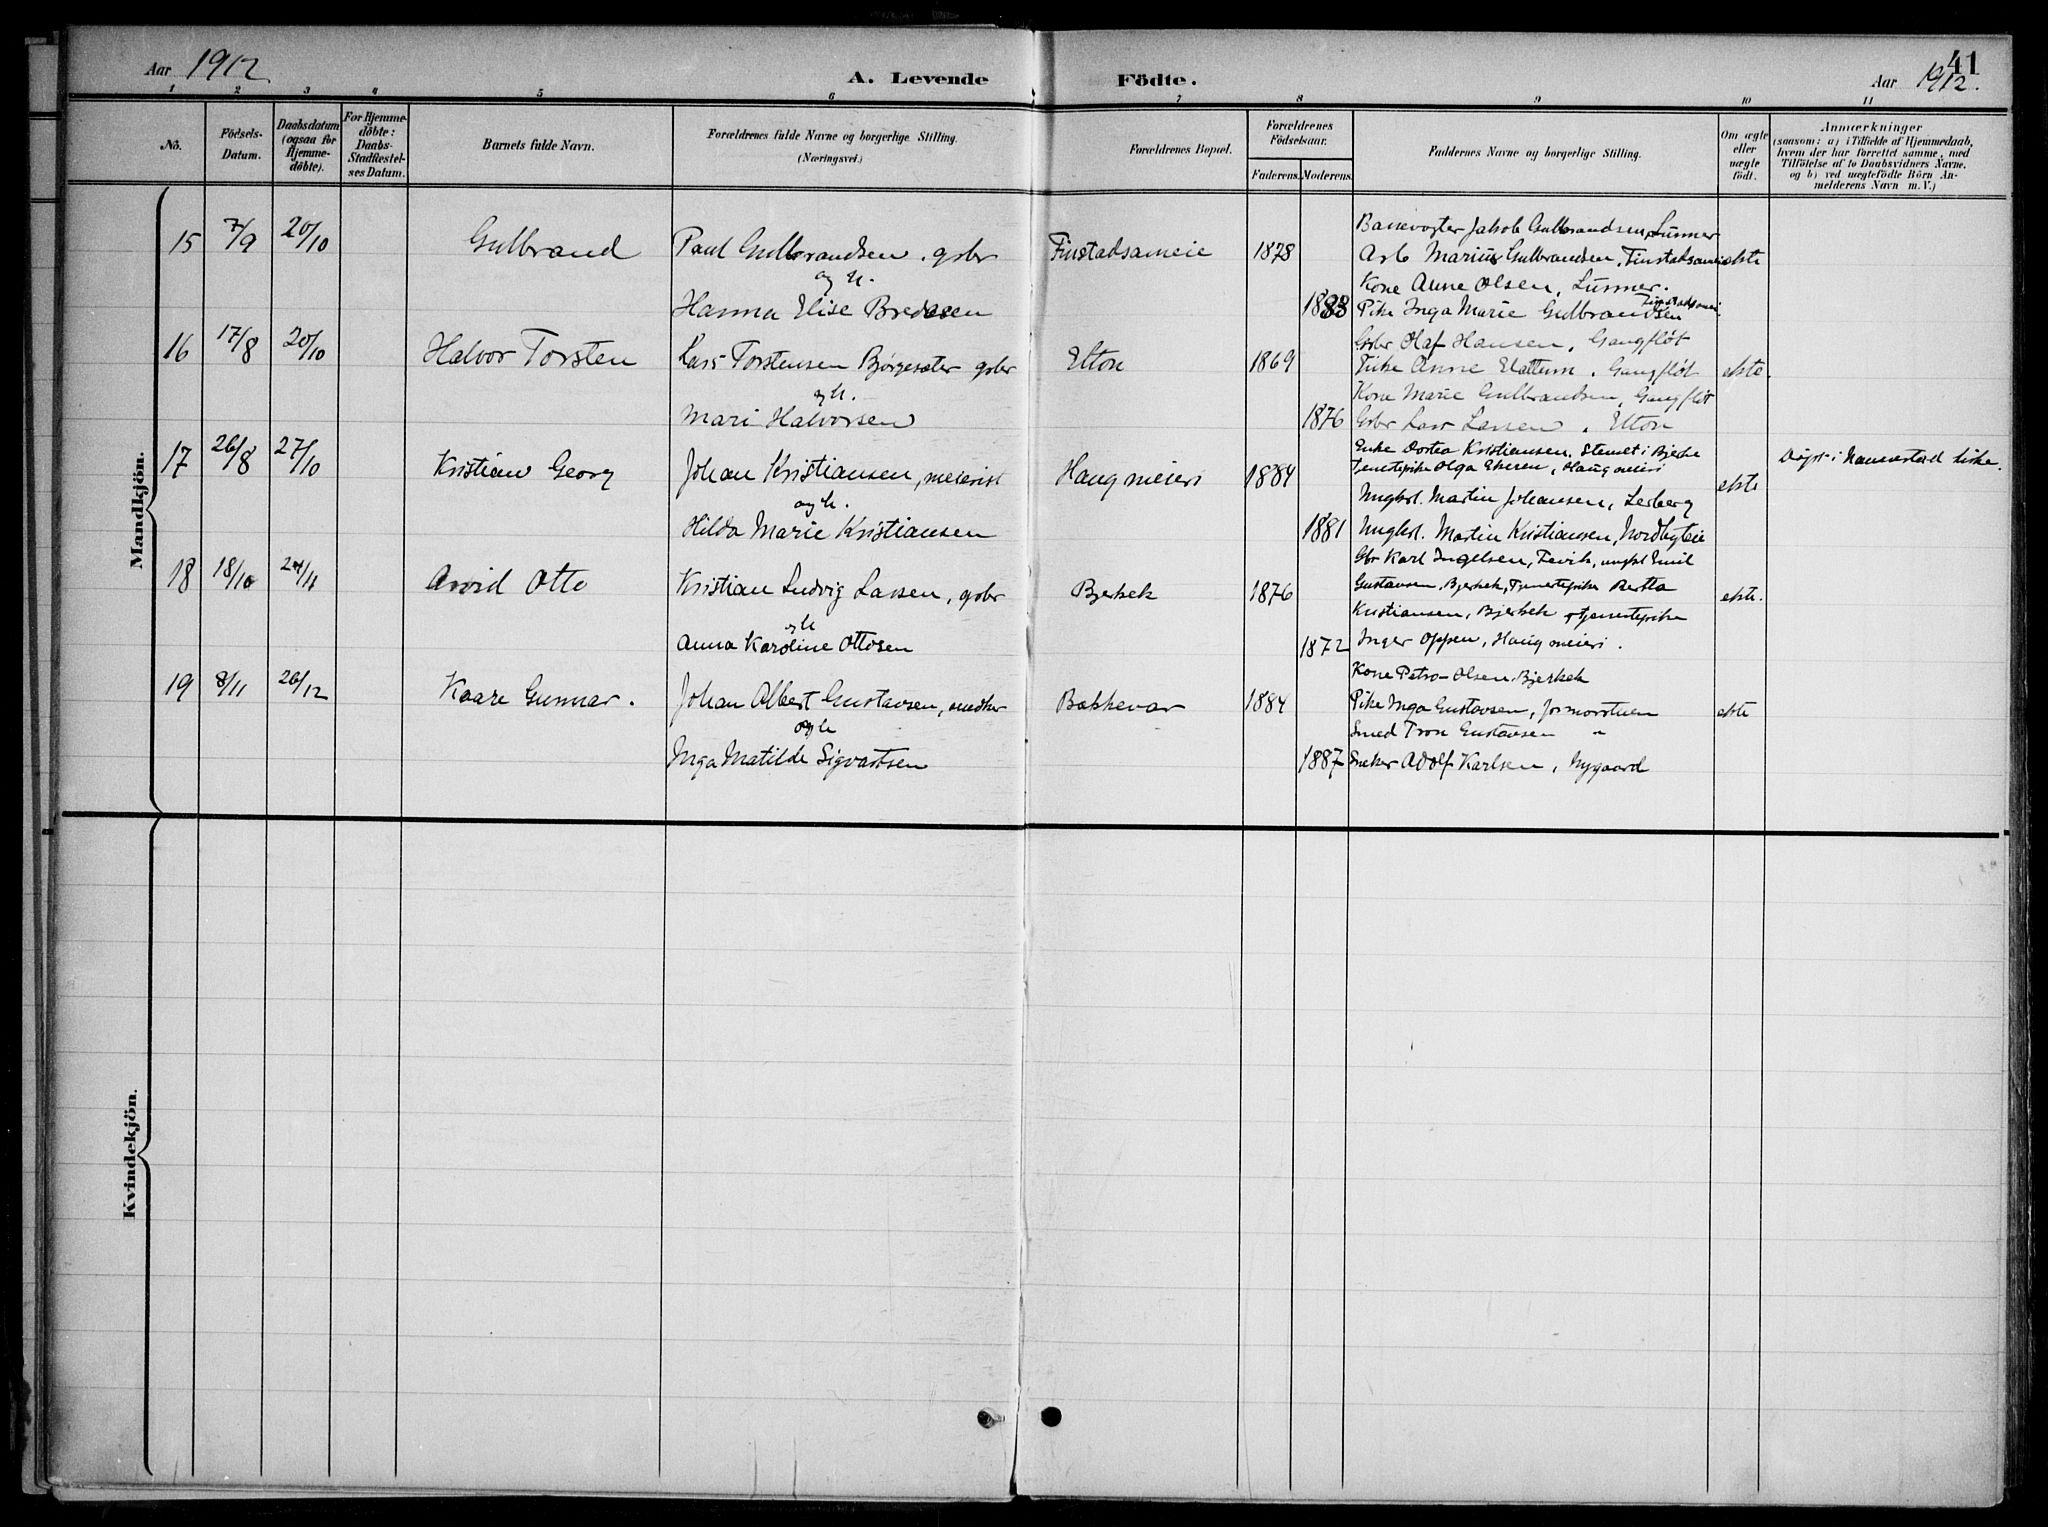 Aar 1912
A. Levende Födte.
Aar 1912.
41
1 2 3 4 5 6 7 8 9 10 11
Nö.
Födsels-
Datum.
Daabsdatum
(ogsaa for
Hjemme-
döbte).
For Hjemme-
döbte:
Daabs-
Stadfæstel-
ses Datum.
Barnets fulde Navn.
Forældrenes fulde Navne og borgerlige Stilling.
(Næringsvei.)
Forældrenes Bopæl.
Forældrenes
Födselsaar.
Faderens. Moderens.
Faddernes Navne og borgerlige Stilling.
Om ægte
eller
uægte
födt.
Anmærkninger
(saasom: a) i Tilfælde af Hjemmedaab,
hvem der har forrettet samme, med
Tilföielse af to Daabsvidners Navne.
og b) ved uægtefödte Börn An-
melderens Navn m. V.)
Mandkjön.
15 7/9 20/10 Gulbrand Paul Gulbrandsen, gsbr Finstadsameie 1878
og h.
Hanna Elise Bredesen 1883
Banevogter Jakob Gulbrandsen, Lunner
Arb Marius Gulbrandsen, Finstadsameie ekte
Kone Anne Olsen, Lunner.
Pike Inga Marie Gulbrandsen
16 17/8 20/10 Halvor Torsten Lars Torstensen Børgesæter gsbr Elton 1869
og h.
Mari Halvorsen 1876
Gsbr Olaf Hansen, Gangfløt
Enke Anne Flattum, Gangfløt ekte.
Kone Marie Gulbrandsen, Gangfløt
Gsbr Lars Larsen, Elton
17 26/8 27/10 Kristian Georg Johan Kristiansen, meierist Haug meieri 1884
og h.
Hilda Marie Kristiansen 1881
Enke Dortea Kristiansen, i Bjerke
Tjenestepike Olga, Haug meieri
Ungkrl. Martin Johansen, Lerberg ekte
Ungkrl. Martin Kristiansen, Nordbyeie
Døpt i kirke.
18 18/10 24/11 Arvid Otto Kristian Ludvig Larsen, gsbr Bjerkek 1876
og h
Anna Karoline Ottosen 1872
Gbr Karl Ingelsen, ungkrl Emil
Gustavsen, Bjerkek, Tjenestepike Bertha ekte.
Kristiansen, Bjerkek, tjenestepike
Inger Oppen, Haug meieri.
19 8/11 26/12 Kaare Gunnar. Johan Albert Gustavsen, snedker Bakkevar 1884
og h
Inga Matilde Sigvartsen 1887
Kone Petra Olsen, Bjerkek
Pike Inga Gustavsen, Jormorstuen ekte
Smed Tron Gustavsen "
Sneker Adolf Karlsen, Nygaard
Kvindekjön.